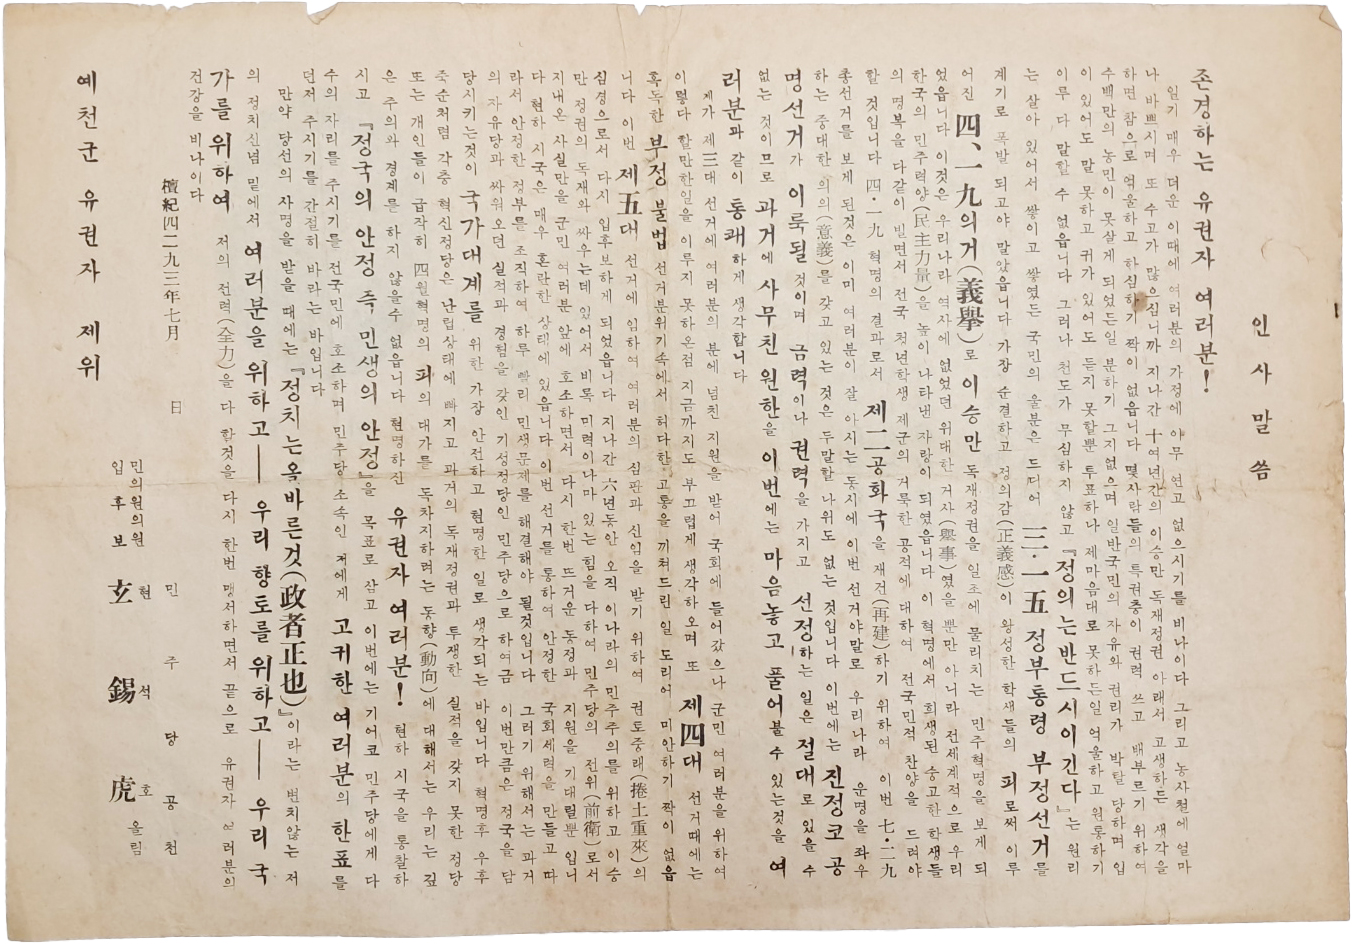 인사말씀
존경하는 유권자 여러분!
일기 매우 더운 이때에 여러분의 가정에 아무 연고 없으시기를 비나이다 그리고 농사철에 얼마
나 바쁘시며 또 수고가 많으십니까 지나간 十여년간의 이승만 독재정권 아래서 고생하든 생각을
하면 참으로 억울하고 하심하기 짝이 없읍니다 몇사람들의 특권층이 권력 쓰고 배부르기 위하여
수백만의 농민이 못살게 되었든일 분하기 그지없으며 일반국민의 자유와 권리가 박탈 당하며 입
이 있어도 말 못하고 귀가 있어도 듣지 못할뿐 투표하나 제마음대로 못하든일 억울하고 원통하기
이루 다 말할 수 없읍니다 그러나 천도가 무심하지 않고 『정의는반드시이긴다』는 원리
는 살아 있어서 쌓이고 쌓였든 국민의 울분은 드디어 三·一五 정부통령 부정선거를
계기로 폭발 되고야 말았읍니다 가장 순결하고 정의감(正義感)이 왕성한 학생들의 피로써 이루
어진 四、一九의거(義擧)로 이승만 독재정권을 일조에 물리치는 민주혁명을 보게 되
었읍니다 이것은 우리나라 역사에 없었던 위대한 거사(擧事)였을 뿐만 아니라 전세계적으로 우리
한국의 민주력양(民主力量)을 높이 나타낸 자랑이 되였읍니다 이 혁명에서 희생된 숭고한 학생들
의 명복을 다같이 빌면서 전국 청년학생 제군의 거룩한 공적에 대하여 전국민적 찬양을 드려야
할 것입니다 四·一九 혁명의 결과로서 제二공화국을 재건(再建)하기 위하여 이번 七·二九
총선거를 보게 된것은 이미 여러분이 잘 아시는 동시에 이번 선거야말로 우리나라 운명을 좌우
하는 중대한 의의(意義)를 갖고 있는 것은 두말할 나위도 없는 것입니다 이번에는 진정코 공
명선거가 이룩될 것이며 금력이나 권력을 가지고 선정하는 일은 절대로 있을 수
없는 것이므로 과거에 사무친 원한을 이번에는 마음놓고 풀어볼 수 있는것을 여
러분과 같이 통쾌하게 생각합니다
제가 제三대 선거에 여러분의 분에 넘친 지원을 받어 국회에 들어갔으나 군민 여러분을 위하여
이렇다 할만한일을 이루지 못하온점 지금까지도 부끄럽게 생각하오며 또 제四대 선거때에는
혹독한 부정 불법 선거분위기속에서 허다한 고통을 끼쳐드린 일 도리어 미안하기 짝이 없읍
니다 이번 제五대 선거에 임하여 여러분의 심판과 신임을 받기 위하여 권토중래(捲土重來)의
심경으로서 다시 입후보하게 되었읍니다 지나간 六년동안 오직 이나라의 민주주의를 위하고 이승
만 정권의 독재와 싸우는데 있어서 비록 미력이나마 있는 힘을 다하여 민주당의 전위(前衛)로서
지내온 사실만을 군민 여러분 앞에 호소하면서 다시 한번 뜨거운 동정과 지원을 기대릴뿐 입니
다 현하 시국은 매우 혼란한 상태에 있읍니다 이번 선거를 통하여 안정한 국회세력을 만들고 따
라서 안정한 정부를 조직하여 하루 빨리 민생문제를 해결해야 될것입니다 그러기 위해서는 과거
의 자유당과 싸워오던 실적과 경험을 갖인 기성정당인 민주당으로 하여금 이번만큼은 정국을 담
당시키는것이 국가대계를 위한 가장 안전하고 현명한 일로 생각되는 바입니다 혁명후 우후
죽순처럼 각층 혁신정당은 난립상태에 빠지고 과거의 독재정권과 투쟁한 실적을 갖지 못한 정당
또는 개인들이 급작히 四월혁명의 피의 대가를 독차지하려는 동향(動向)에 대해서는 우리는 깊
은 주의와 경계를 하지 않을수 없읍니다 현명하진 유권자 여러분! 현하 시국을 통찰하
시고 『정국의 안정 즉 민생의 안정』을 목표로 삼고 이번에는 기어코 민주당에게 다
수의 자리를 주시기를 전국민에 호소하며 민주당 소속인 저에게 고귀한 여러분의 한표를
던저 주시기를 간절히 바라는 바입니다
만약 당선의 사명을 받을 때에는 『정치는올바른것(政者正也)』이라는 변치않는 저
의 정치신념 밑에서 여러분을 위하고── 우리 향토를 위하고── 우리 국
가를 위하여 저의 전력(全力)을 다 할것을 다시 한번 맹서하면서 끝으로 유권자 여러분의
건강을 비나이다
檀紀四二九三年七月 日
민주당공천
민의원의원
입후보 玄錫虎 현석호 올림
예천군 유권자 제위